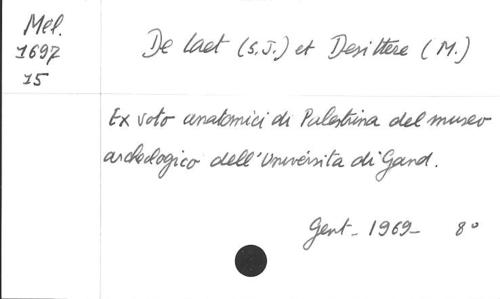 Mél.
1697
15
De Laet (S.J.) et Desittere (M.)
Ex voto anatomici di Palestrina del museo
archeologico dell'Universita di Gand.
Gent - 1969 - 8°